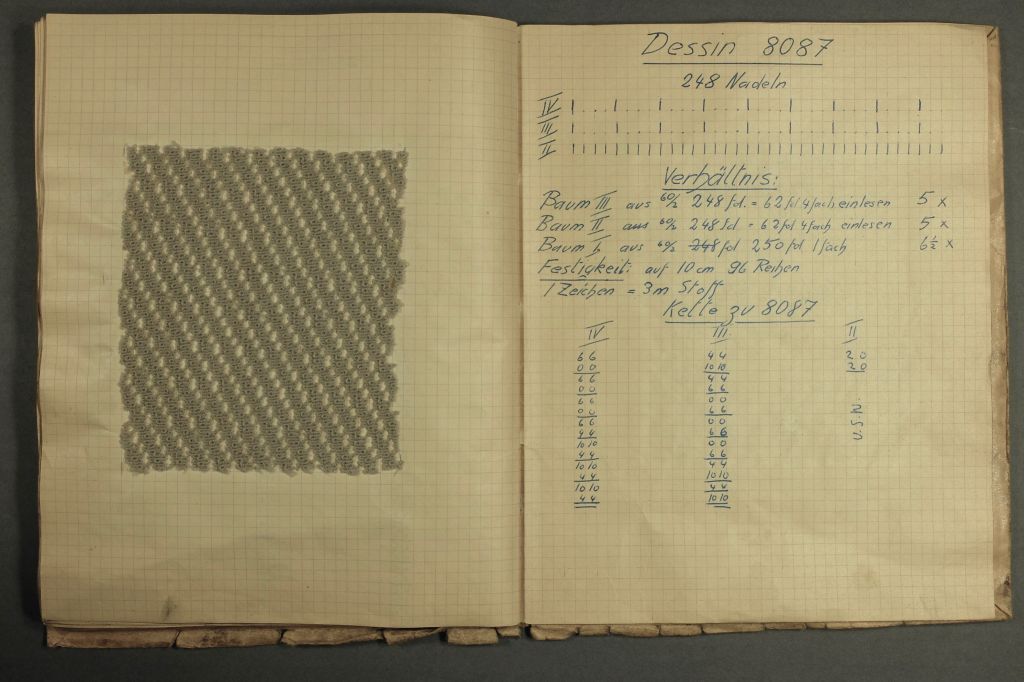 Dessin 8087
248 Nadeln
IV | . . . | . . . | . . . | . . . | . . . | . . . | . . . | . . . |
III | . . . | . . . | . . . | . . . | . . . | . . . | . . . | . . . |
II
Verhältnis:
Baum III aus 60/2 248 fd. = 62 fd 4fach einlesen 5 x
Baum II aus 60/2 248 fd. = 62 fd 4fach einlesen 5 x
Baum I aus 60/2 248 fd 250 fd 1 fach 6½ x
Festigkeit: auf 10 cm 96 Reihen
1 Zeichen = 3m Stoff
Kette zu 8087
IV III II
6 6 4 4 2 0
0 0 10 10 2 0
6 6 4 4
0 0 6 6
6 6 0 0
0 0 6 6
6 6 0 0
4 4 6 6
10 10 0 0
4 4 6 6
10 10 4 4
4 4 10 10
10 10 4 4
4 4 10 10
U.S.W.